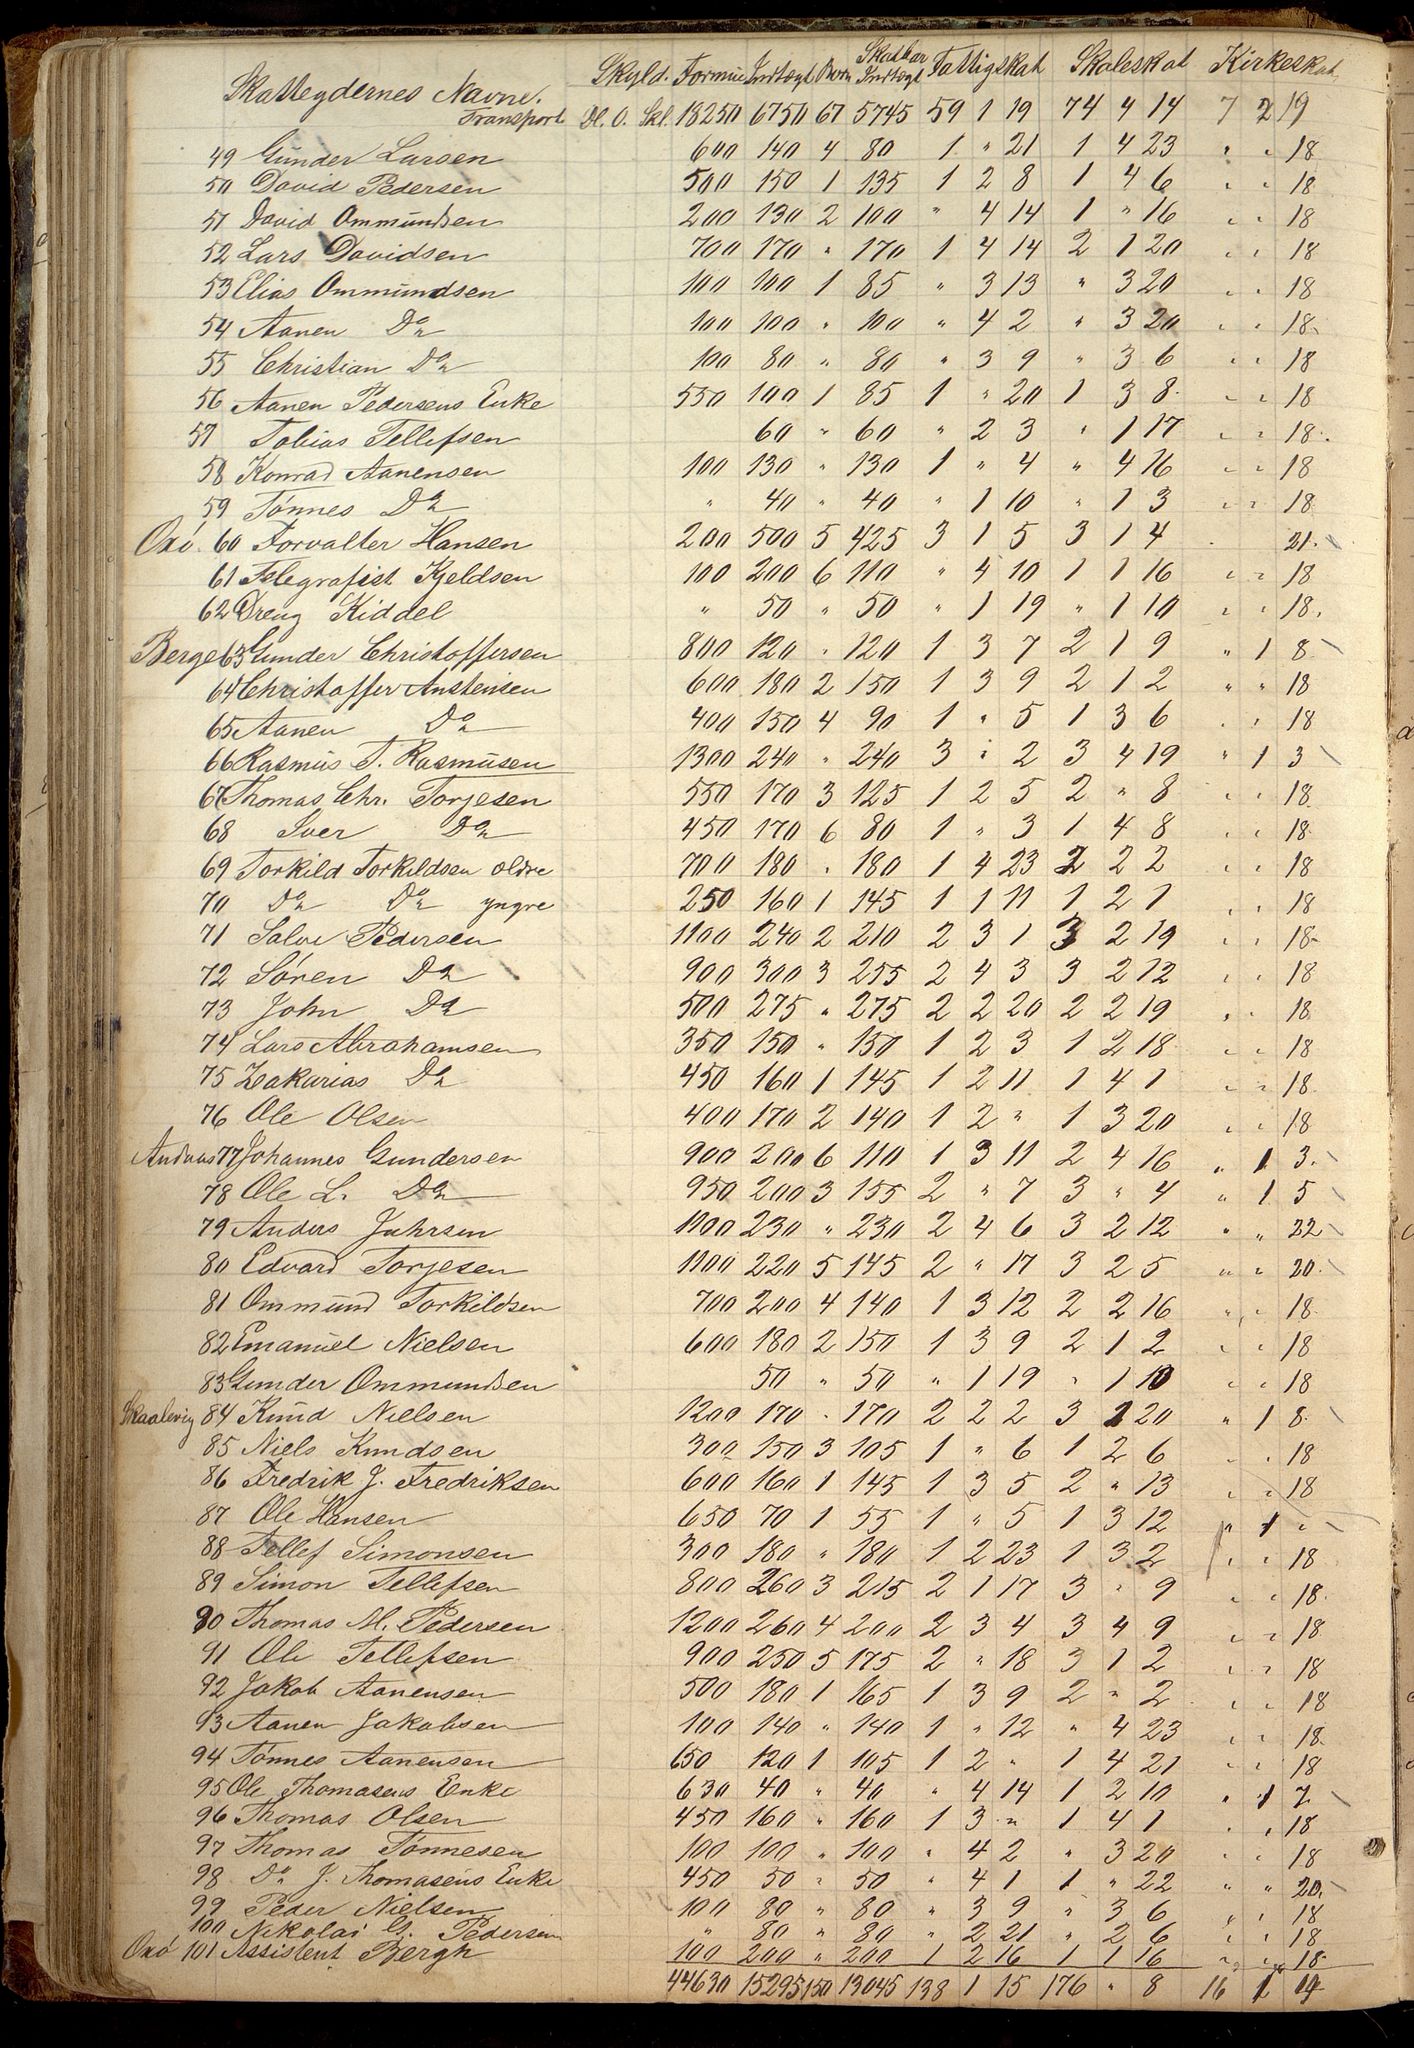 Skatteydernes Navne. Skyld. Formue Indtægt Børn Skatbar Indtægt Fattigskat Skoleskat Kirkeskat
Transport Dl. O. Skl. 18250 6750 67 5745 59 1 19 74 4 14 7 2 19
49 Gunder Larsen 600 140 4 80 1 " 21 1 4 23 " " 18
50 David Pedersen 500 150 1 135 1 2 8 1 4 6 " " 18
51 David Ommundsen 200 130 2 100 " 4 14 1 " 16 " " 18
52 Lars Davidsen 700 170 " 170 1 4 14 2 1 20 " " 18
53 Elias Ommundsen 100 100 1 85 " 3 13 " 3 20 " " 18
54 Aanen Do 100 100 " 100 " 4 2 " 3 20 " " 18
55 Christian Do 100 80 " 80 " 3 9 " 3 6 " " 18
56 Aanen Pedersens Enke 550 100 1 85 1 " 20 1 3 8 " " 18
57 Tobias Tellefsen 60 " 60 " 2 3 " 1 17 " " 18
58 Konrad Aanensen 100 130 " 130 1 " 4 " 4 16 " " 18
59 Tønnes Do " 40 " 40 " 1 10 " 1 3 " " 18
Oxö 60 Forvalter Hansen 200 500 5 425 3 1 5 3 1 4 21
61 Telegrafist Kjeldsen 100 200 6 110 " 4 10 1 1 16 " " 18
62 Dreng Kiddel " 50 " 50 " 1 19 " 1 10 " " 18
Berge 63 Gunder Christoffersen 800 120 " 120 1 3 7 2 1 9 " 1 8
64 Christoffer Anstensen 600 180 2 150 1 3 9 2 1 2 " " 18
65 Aanen Do 400 150 4 90 1 " 5 1 3 6 " " 18
66 Rasmus T. Rasmusen 1300 240 " 240 3 " 2 3 4 19 " 1 3
67 Thomas Chr. Torjesen 550 170 3 125 1 2 5 2 " 8 " " 18
68 Iver Do 450 170 6 80 1 " 3 1 4 8 " " 18
69 Torkild Torkildsen ældre 700 180 " 180 1 4 23 2 2 2 " " 18
70 Do Do yngre 250 160 1 145 1 1 11 1 2 1 " " 18
71 Salve Pedersen 1100 240 2 210 2 3 1 3 2 19 " " 18
72 Søren Do 900 300 3 255 2 4 3 3 2 12 " " 18
73 John Do 500 275 " 275 2 2 20 2 2 19 " " 18
74 Lars Abrahamsen 350 150 " 150 1 2 3 1 2 18 " " 18
75 Zakarias Do 450 160 1 145 1 2 11 1 4 1 " " 18
76 Ole Olsen 400 170 2 140 1 2 " 1 3 20 " " 18
Andaas 77 Johannes Gundersen 900 200 6 110 1 3 11 2 4 16 " 1 3
78 Ole L. Do 950 200 3 155 2 " 7 3 " 4 " 1 5
79 Anders Juhrsen 1000 230 " 230 2 4 6 3 2 12 " " 22
80 Edvard Torjesen 1100 220 5 145 2 " 17 3 2 5 " " 20
81 Ommund Torkildsen 700 200 4 140 1 3 12 2 2 16 " " 18
82 Emanuel Nielsen 600 180 2 150 1 3 9 2 1 2 " " 18
83 Gunder Ommundsen 50 " 50 " 1 19 " 1 10 " " 18
Skaalevig 84 Knud Nielsen 1200 170 " 170 2 2 2 3 1 20 " 1 8
85 Niels Knudsen 300 150 3 105 1 " 6 1 2 6 " " 18
86 Fredrik J. Fredriksen 600 160 1 145 1 3 5 2 " 13 " " 18
87 Ole Hansen 650 70 1 55 1 " 5 1 3 12 " 1 "
88 Tellef Simonsen 300 180 " 180 1 2 23 1 3 2 " " 18
89 Simon Tellefsen 800 260 3 215 2 1 17 3 " 9 " " 18
90 Thomas M. Pedersen 1200 260 4 200 2 3 4 3 4 9 " " 18
91 Ole Tellefsen 900 250 5 175 2 " 18 3 1 2 " " 18
92 Jakob Aanensen 500 180 1 165 1 3 9 2 " 2 " " 18
93 Aanen Jakobsen 100 140 " 140 1 " 12 " 4 23 " " 18
94 Tønnes Aanensen 650 120 1 105 1 2 " 1 4 21 " " 18
95 Ole Thomasens Enke 630 40 " 40 " 4 14 1 2 10 " 1 7
96 Thomas Olsen 450 160 " 160 1 3 " 1 4 1 " " 18
97 Thomas Tønnesen 100 100 " 100 " 4 2 " 3 20 " " 18
98 Do J. Thomasens Enke 450 50 " 50 " 4 1 1 " 22 " " 20
99 Peder Nielsen 100 80 " 80 " 3 9 " 3 6 " " 18
100 Nikolai G. Pedersen " 80 " 80 " 2 21 " 2 6 " " 18
Oxö 101 Assistent Bergh 100 200 " 200 1 2 16 1 1 16 " " 18
44630 15295 150 13045 138 1 15 176 " 8 16 1 19